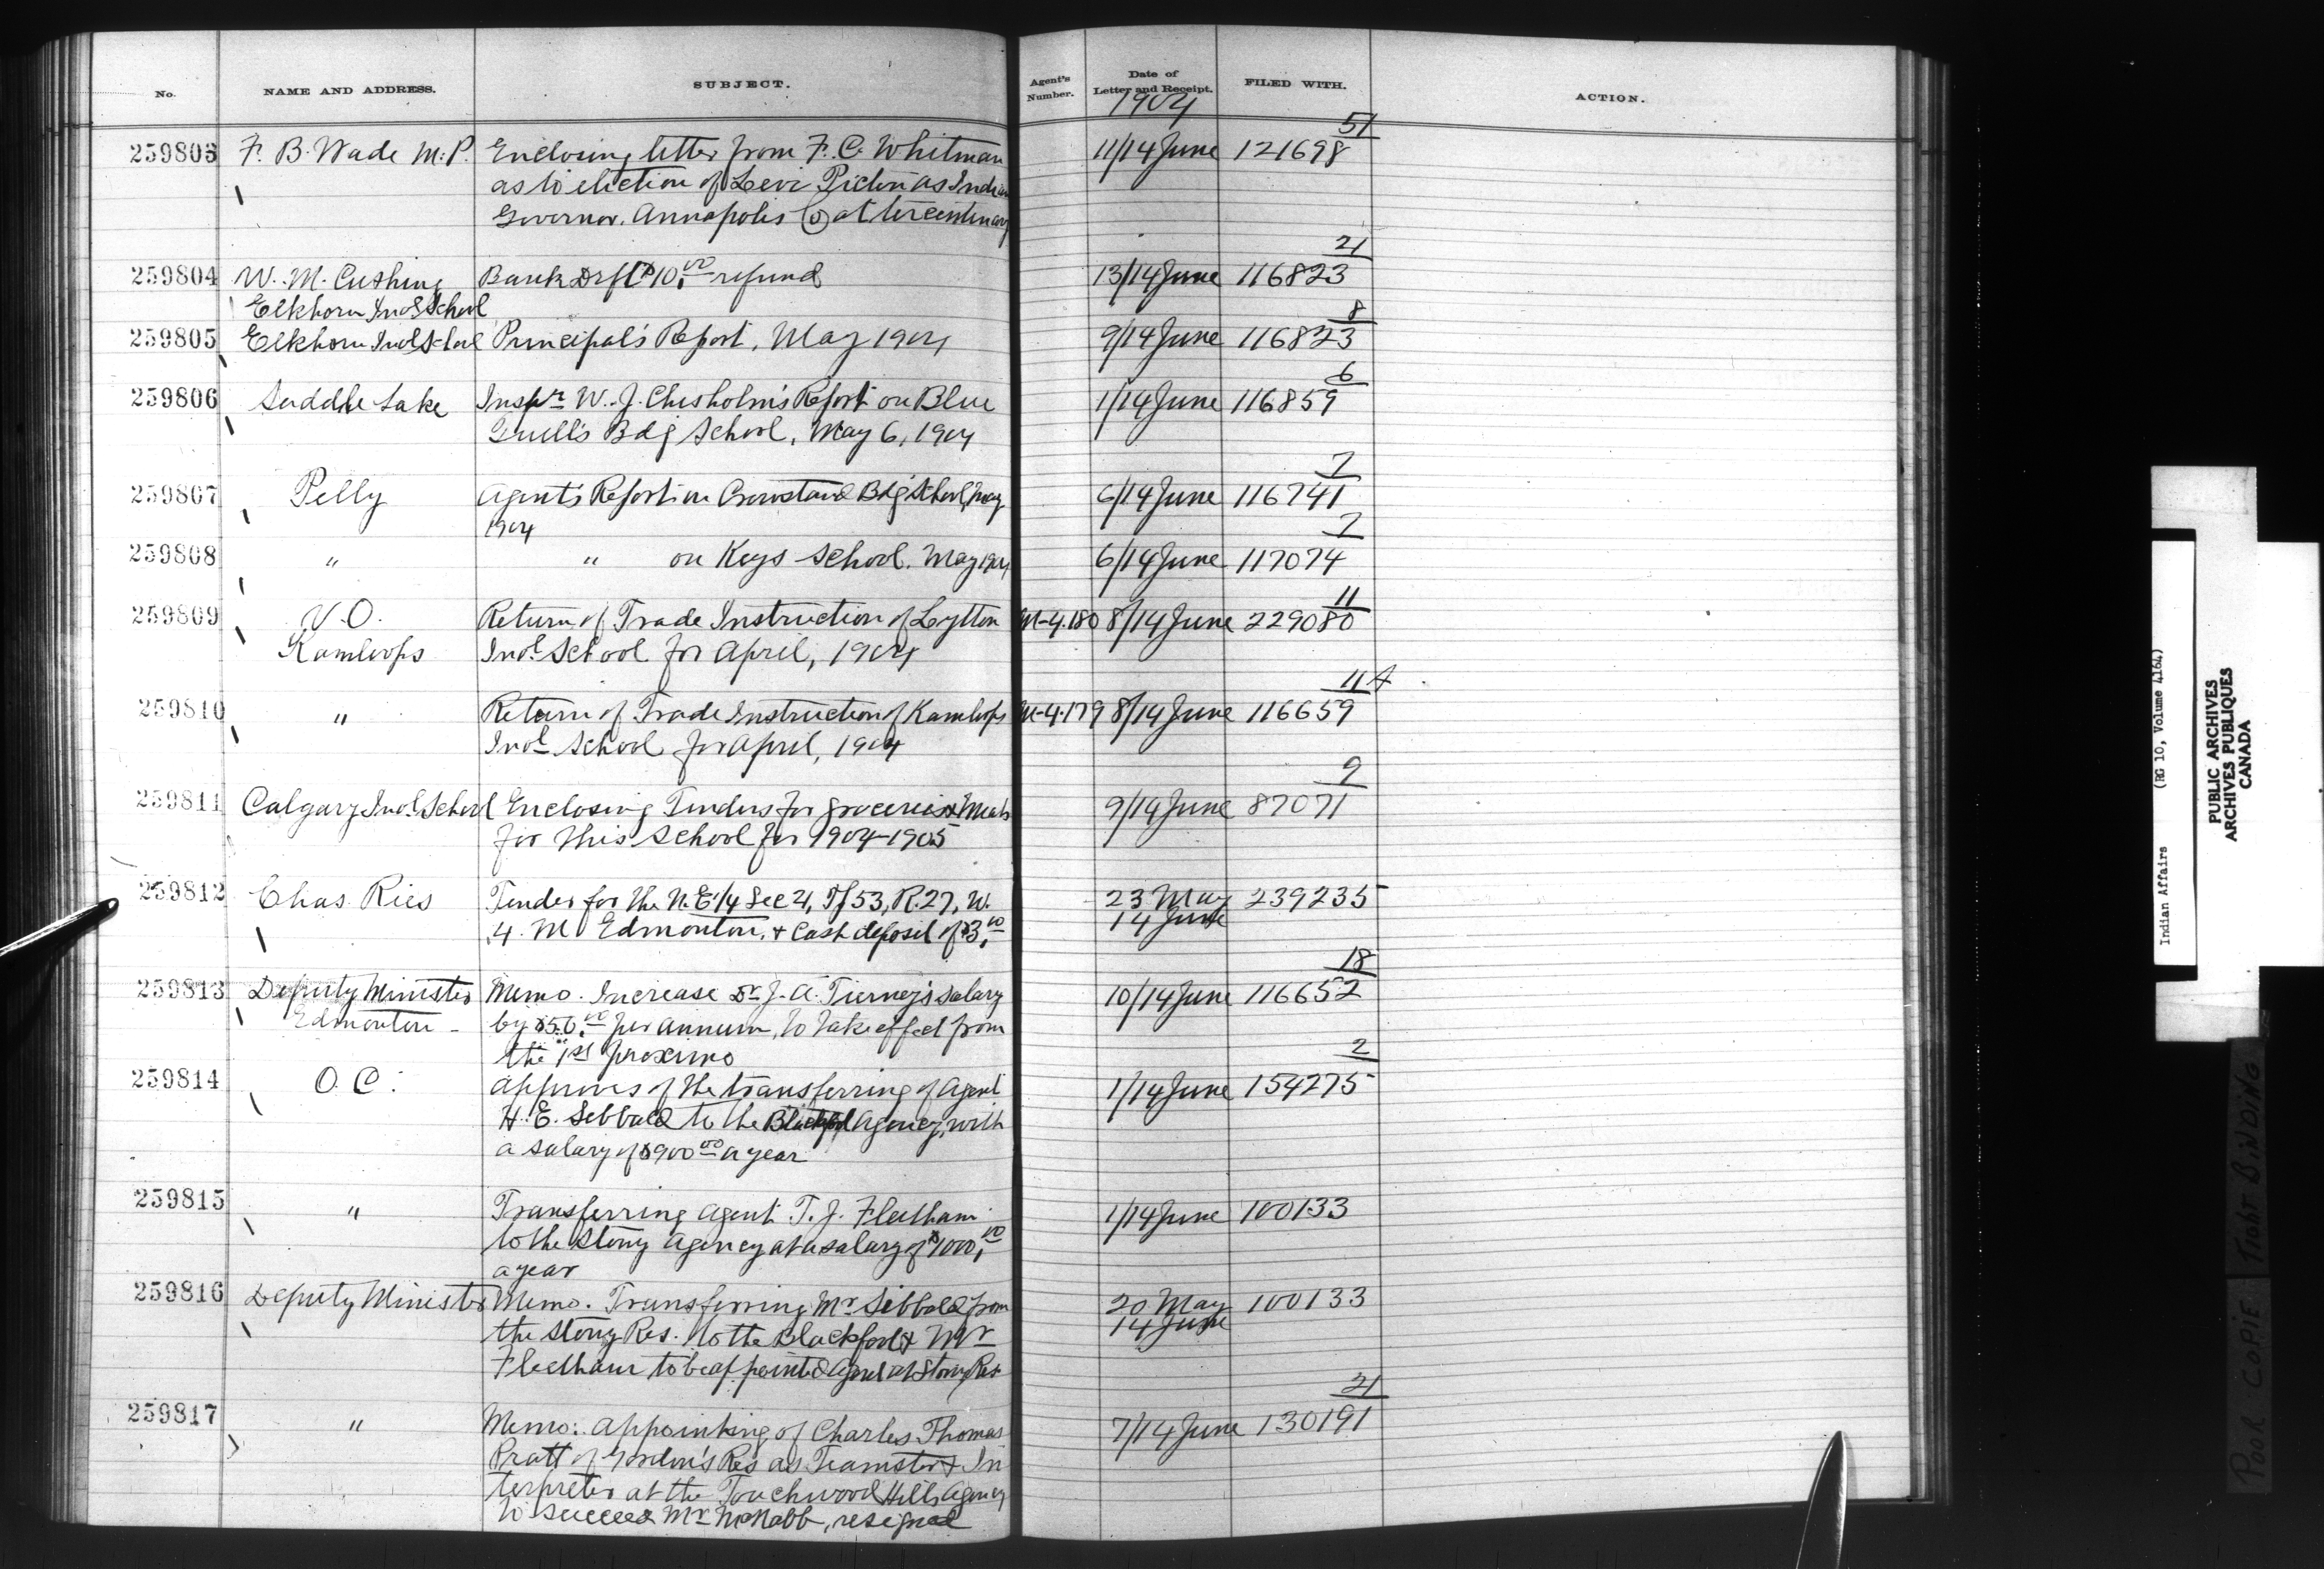 No. NAME AND ADDRESS. SUBJECT. Agent's Number. Date of Letter and Receipt. FILED WITH. ACTION.
1904
51
259803 F. B. Wade M.P. Enclosing letter from F. C. Whitman 11/14 June 121698
as to election of Levi Pictou as Indian
Governor. Annapolis Co at tercentenary
21
259804 W. M. Cushing Bank Drft $10.00 refund 13/14 June 116823
Elkhorn Indl School
8
259805 Elkhorn Indl School Principal's Report, May 1904 9/14 June 116823
6
259806 Saddle Lake Inspr W. J. Chisholm's Report on Blue 1/14 June 116859
Quill's Bdg School, May 6, 1904
7
259807 Pelly Agent's Report on Crowstand Bdg School, May 6/14 June 116741
1904
7
259808 " " on Keys School. May 1904 6/14 June 117074
11
259809 V.O. Return of Trade Instruction of Lytton M-4.180 8/14 June 229080
Kamloops Indl School for April, 1904
11A
259810 " Return of Trade Instruction of Kamloops M-4.179 8/14 June 116659
Indl School for April, 1904
9
259811 Calgary Indl School Enclosing Tenders for groceries & Meats 9/14 June 87071
for this School for 1904-1905
259812 Chas. Ries Tender for the N.E.1/4 Sec 21, Tp 53, R.27, W. 23 May 239235
4. M Edmonton. & Cash deposit of $3.00 14 June
18
259813 Deputy Minister Memo. Increase Dr J. A. Tierney's salary 10/14 June 116652
Edmonton - by $50.00 per annum, to take effect from
the 1st proximo
2
259814 O. C. Approves of the transferring of Agent 1/14 June 154275
H. E. Sibbald to the Blackfoot Agency, with
a salary of $900.00 a year
259815 " Transferring Agent T. J. Fleetham 1/14 June 100133
to the Stony Agency at a salary of $1000.00
a year
259816 Deputy Minister Memo. Transferring Mr Sibbald from 20 May 100133
the Stony Res. to the Blackfoot & Mr 14 June
Fleetham to be appointed Agent at Stony Res.
21
259817 " Memo: Appointing of Charles Thomas 7/14 June 130191
Pratt of Gordon's Res as Teamster & In
terpreter at the Touchwood Hills Agency
to succeed Mr McNabb, resigned
Indian Affairs (RG 10, Volume 4164)
PUBLIC ARCHIVES
ARCHIVES PUBLIQUES
CANADA
POOR COPIE TIGHT BINDING